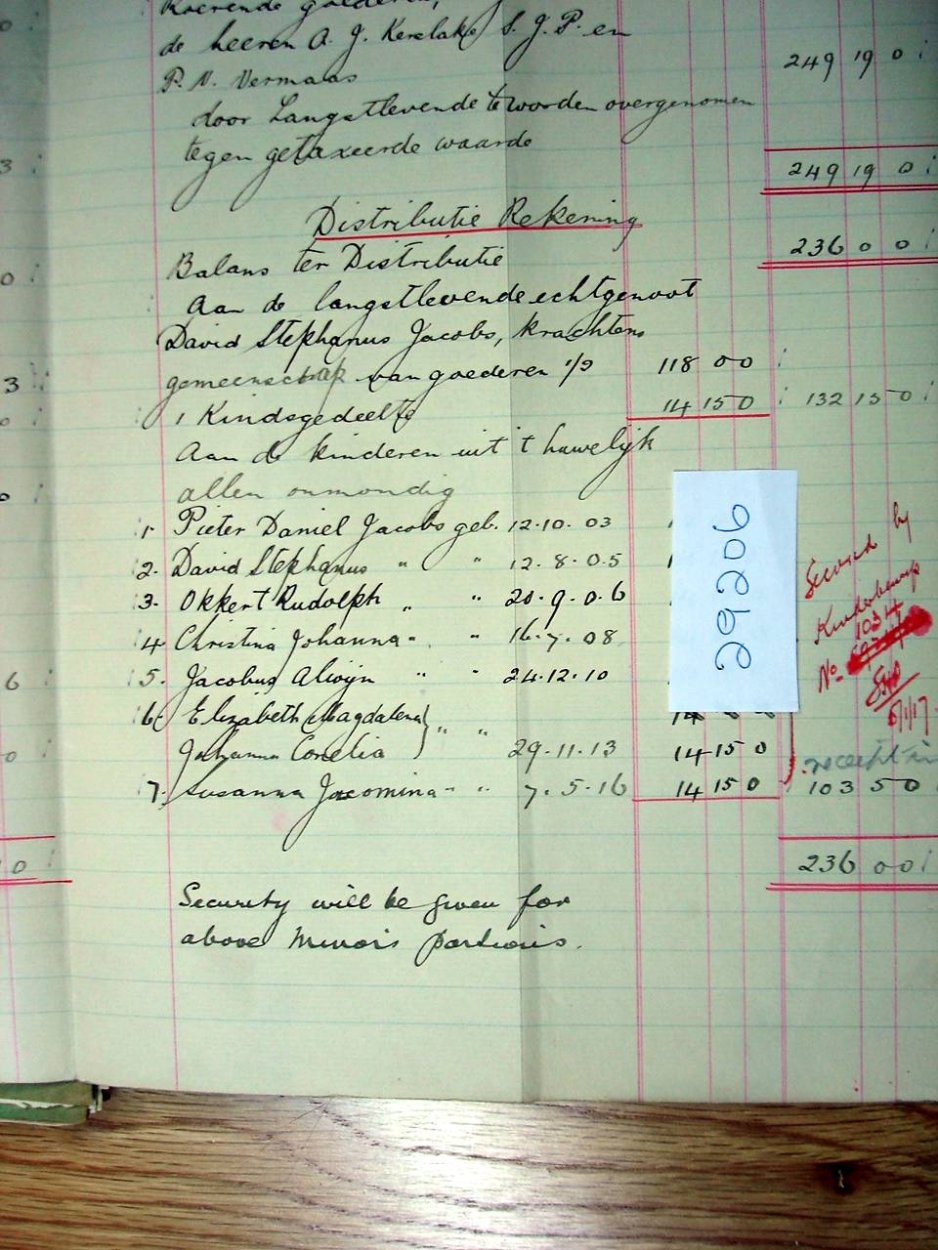 Roerende goederen,
de heeren A. J. Kerslake S. J. P. en
P. V. Vermaas 249 19 0
door Langstlevende te worden overgenomen
tegen getaxeerde waarde
249 19 0
Distributie Rekening
236 0 0
Balans ter Distributie
Aan de langstlevende echtgenoot
David Stephanus Jacobs, krachtens
gemeenschap van goederen 1/2 118 0 0
1 Kindsgedeelte 14 15 0 132 15 0
Aan de kinderen uit 't huwelijk
allen onmondig
1. Pieter Daniel Jacobs geb. 12.10.03
2. David Stephanus " " 12.8.05
3. Okkert Rudolph " " 20.9.06
4 Christina Johanna " " 16.7.08
5. Jacobus Alwijn " " 24.12.10
6. Elizabeth Magdalena } " "
Johanna Conelia 29.11.13 14 15 0
7. Susanna Jacomina " " 7.5.16 14 15 0 103 5 0
236 0 0
Security will be given for
above Minors portions.
29206
Secured by
Kinderbewys
1034
No.
5/1/17
receipt in